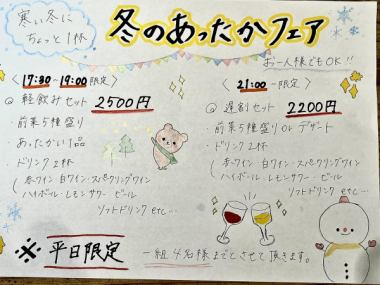 寒い冬に
ちょっと1杯
冬のあったかフェア
お一人様でもOK!!
〈17:30~19:00限定〉
軽飲みセット 2500円
・前菜5種盛り
・あったかい1品
・ドリンク2杯
(赤ワイン・白ワイン・スパークリングワイン
ハイボール・レモンサワー・ビール
ソフトドリンク etc…
〈21:00~限定〉
遅割セット 2200円
・前菜5種盛り or デザート
・ドリンク2杯
(赤ワイン・白ワイン・スパークリングワイン
ハイボール・レモンサワー・ビール
ソフトドリンク etc…
※平日限定
一組4名様までとさせて頂きます。